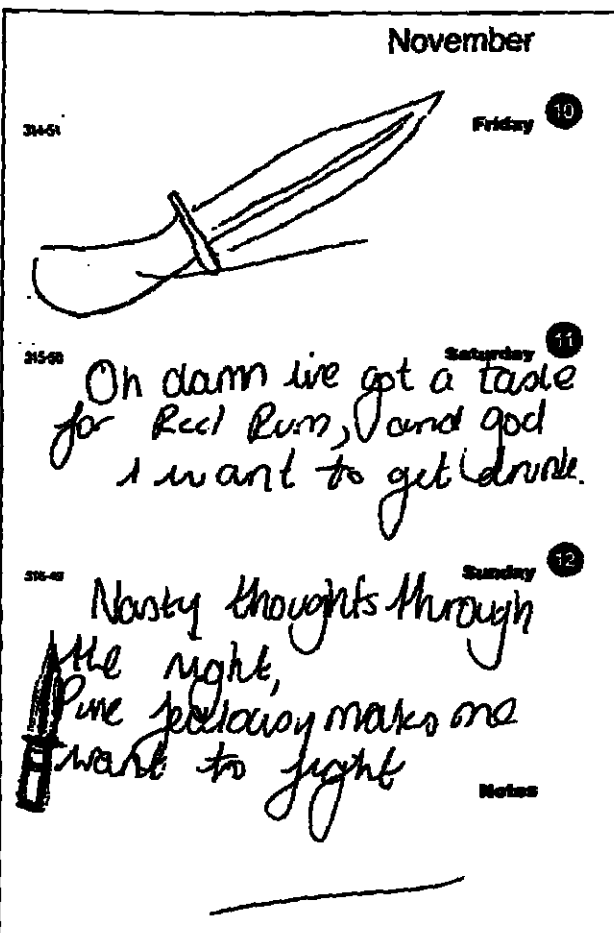 November
Friday 10
314-51
Saturday 11
315-50
Oh damn ive got a taste
for Red Rum, and god
I want to get drunk.
Sunday 12
316-49
Nasty thoughts through
the night,
Pure jealousy makes me
want to fight
Notes